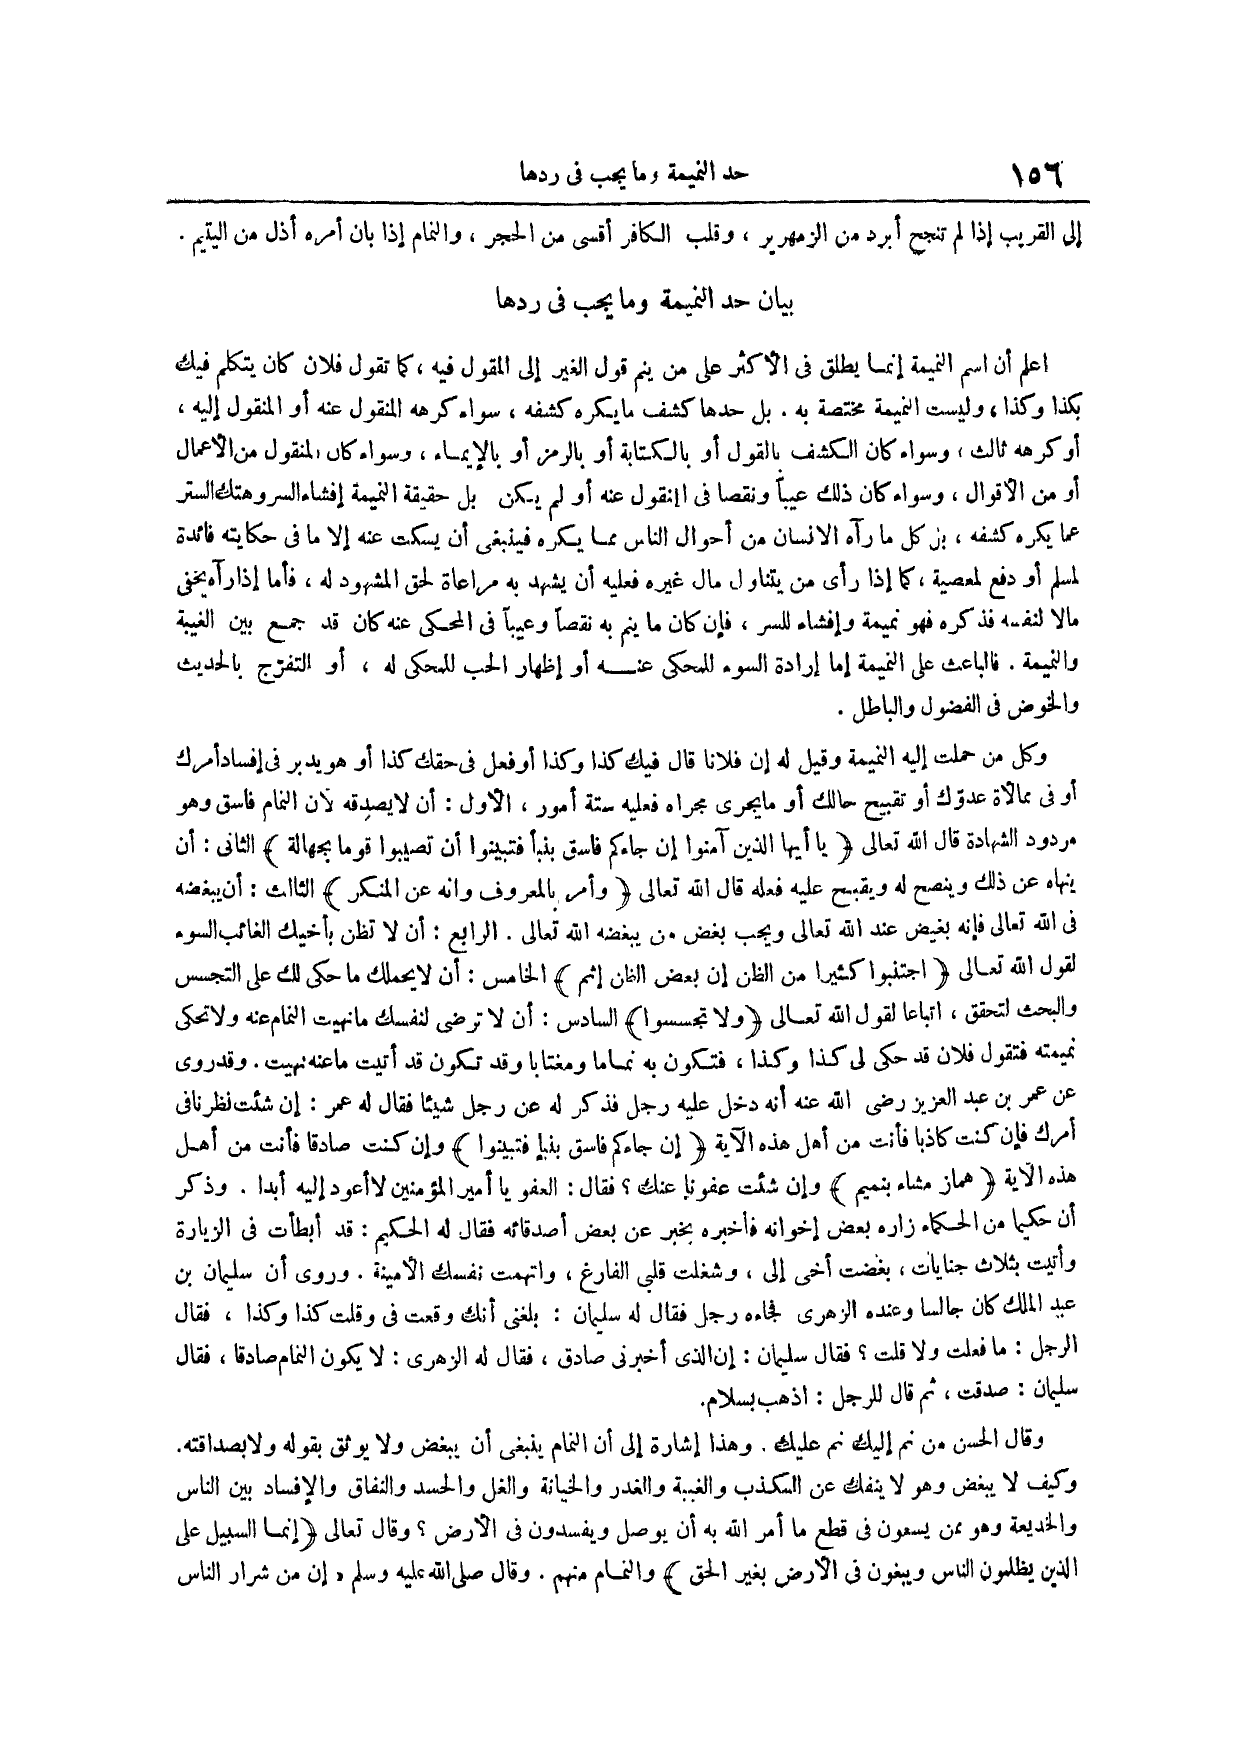 ١٥٦
حد النميمة وما يجب فى ردها
إلى القريب إذا لم تنجح أبرد من الزمهرير ، وقلب الكافر أقسى من الحجر ، والنمام إذا بان أمره أذل من اليتيم .
بيان حد النميمة وما يجب فى ردها
اعلم أن اسم النميمة إنما يطلق فى الأكثر على من ينم قول الغير إلى المقول فيه ، كما تقول فلان كان يتكلم فيك
بكذا وكذا ، وليست النميمة مختصة به . بل حدها كشف ما يكره كشفه ، سواء كرهه المنقول عنه أو المنقول إليه ،
أو كرهه ثالث ، وسواء كان الكشف بالقول أو بالكتابة أو بالرمز أو بالإيماء ، وسواء كان المنقول من الأعمال
أو من الأقوال ، وسواء كان ذلك عيباً ونقصا فى المنقول عنه أو لم يكن بل حقيقة النميمة إفشاء السر وهتك الستر
عما يكره كشفه ، بل كل ما رآه الانسان من أحوال الناس مما يكره فينبغى أن يسكت عنه إلا ما فى حكايته فائدة
لمسلم أو دفع لمعصية ، كما إذا رأى من يتناول مال غيره فعليه أن يشهد به مراعاة لحق المشهود له ، فأما إذا رآه يخفى
مالا لنفسه فذكره فهو نميمة وإفشاء للسر ، فإن كان ما ينم به نقصاً وعيباً فى المحكى عنه كان قد جمع بين الغيبة
والنميمة . فالباعث على النميمة إما إرادة السوء للمحكى عنه أو إظهار الحب للمحكى له ، أو التفرّج بالحديث
والخوض فى الفضول والباطل .
وكل من حملت إليه النميمة وقيل له إن فلانا قال فيك كذا وكذا أو فعل فى حقك كذا أو هو يدبر فى إفساد أمرك
أو فى ممالأة عدوّك أو تقبيح حالك أو ما يجرى مجراه فعليه ستة أمور ، الأول : أن لا يصدقه لأن النمام فاسق وهو
مردود الشهادة قال الله تعالى ﴿ يا أيها الذين آمنوا إن جاءكم فاسق بنبأ فتبينوا أن تصيبوا قوما بجهالة ﴾ الثانى : أن
ينهاه عن ذلك وينصح له ويقبح عليه فعله قال الله تعالى ﴿ وأمر بالمعروف وانه عن المنكر ﴾ الثالث : أن يبغضه
فى الله تعالى فإنه بغيض عند الله تعالى ويجب بغض من يبغضه الله تعالى . الرابع : أن لا تظن بأخيك الغائب السوء
لقول الله تعالى ﴿ اجتنبوا كثيرا من الظن إن بعض الظن إثم ﴾ الخامس : أن لا يحملك ما حكى لك على التجسس
والبحث لتحقق ، اتباعا لقول الله تعالى ﴿ولا تجسسوا﴾ السادس : أن لا ترضى لنفسك ما نهيت النمام عنه ولا تحكى
نميمته فتقول فلان قد حكى لى كذا وكذا ، فتكون به نماما ومغتابا وقد تكون قد أتيت ما عنه نهيت . وقد روى
عن عمر بن عبد العزيز رضى الله عنه أنه دخل عليه رجل فذكر له عن رجل شيئا فقال له عمر : إن شئت نظرنا فى
أمرك فإن كنت كاذبا فأنت من أهل هذه الآية ﴿ إن جاءكم فاسق بنبإ فتبينوا ﴾ وإن كنت صادقا فأنت من أهل
هذه الآية ﴿ هماز مشاء بنميم ﴾ وإن شئت عفونا عنك ؟ فقال : العفو يا أمير المؤمنين لا أعود إليه أبدا . وذكر
أن حكيما من الحكماء زاره بعض إخوانه فأخبره بخبر عن بعض أصدقائه فقال له الحكيم : قد أبطأت فى الزيارة
وأتيت بثلاث جنايات ، بغضت أخى إلى ، وشغلت قلبى الفارغ ، واتهمت نفسك الأمينة . وروى أن سليمان بن
عبد الملك كان جالسا وعنده الزهرى فجاءه رجل فقال له سليمان : بلغنى أنك وقعت فى وقلت كذا وكذا ، فقال
الرجل : ما فعلت ولا قلت ؟ فقال سليمان : إن الذى أخبرنى صادق ، فقال له الزهرى : لا يكون النمام صادقا ، فقال
سليمان : صدقت ، ثم قال للرجل : اذهب بسلام.
وقال الحسن من نم إليك نم عليك . وهذا إشارة إلى أن النمام ينبغى أن يبغض ولا يوثق بقوله ولا بصداقته.
وكيف لا يبغض وهو لا ينفك عن الكذب والغيبة والغدر والخيانة والغل والحسد والنفاق والإفساد بين الناس
والخديعة وهو ممن يسعون فى قطع ما أمر الله به أن يوصل ويفسدون فى الأرض ؟ وقال تعالى ﴿إنما السبيل على
الذين يظلمون الناس ويبغون فى الأرض بغير الحق ﴾ والنمام منهم . وقال صلى الله عليه وسلم « إن من شرار الناس